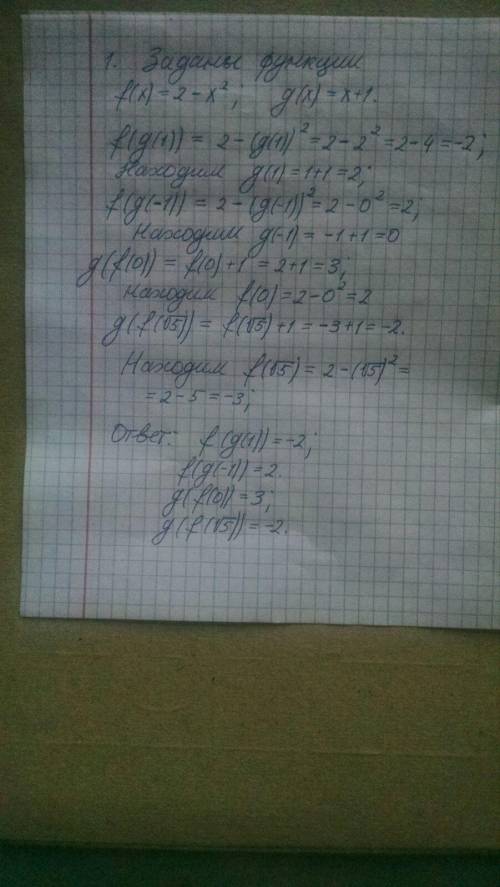 1. Заданы функции
f(x) = 2 - x²; g(x) = x+1.
f(g(1)) = 2 - (g(1))² = 2 - 2² = 2 - 4 = -2;
Находим g(1) = 1+1 = 2;
f(g(-1)) = 2 - (g(-1))² = 2 - 0² = 2;
Находим g(-1) = -1+1 = 0
g(f(0)) = f(0)+1 = 2+1 = 3;
Находим f(0) = 2 - 0² = 2
g(f(√5)) = f(√5)+1 = -3+1 = -2.
Находим f(√5) = 2 - (√5)² =
= 2 - 5 = -3;
Ответ: f(g(1)) = -2;
f(g(-1)) = 2.
g(f(0)) = 3;
g(f(√5)) = -2.